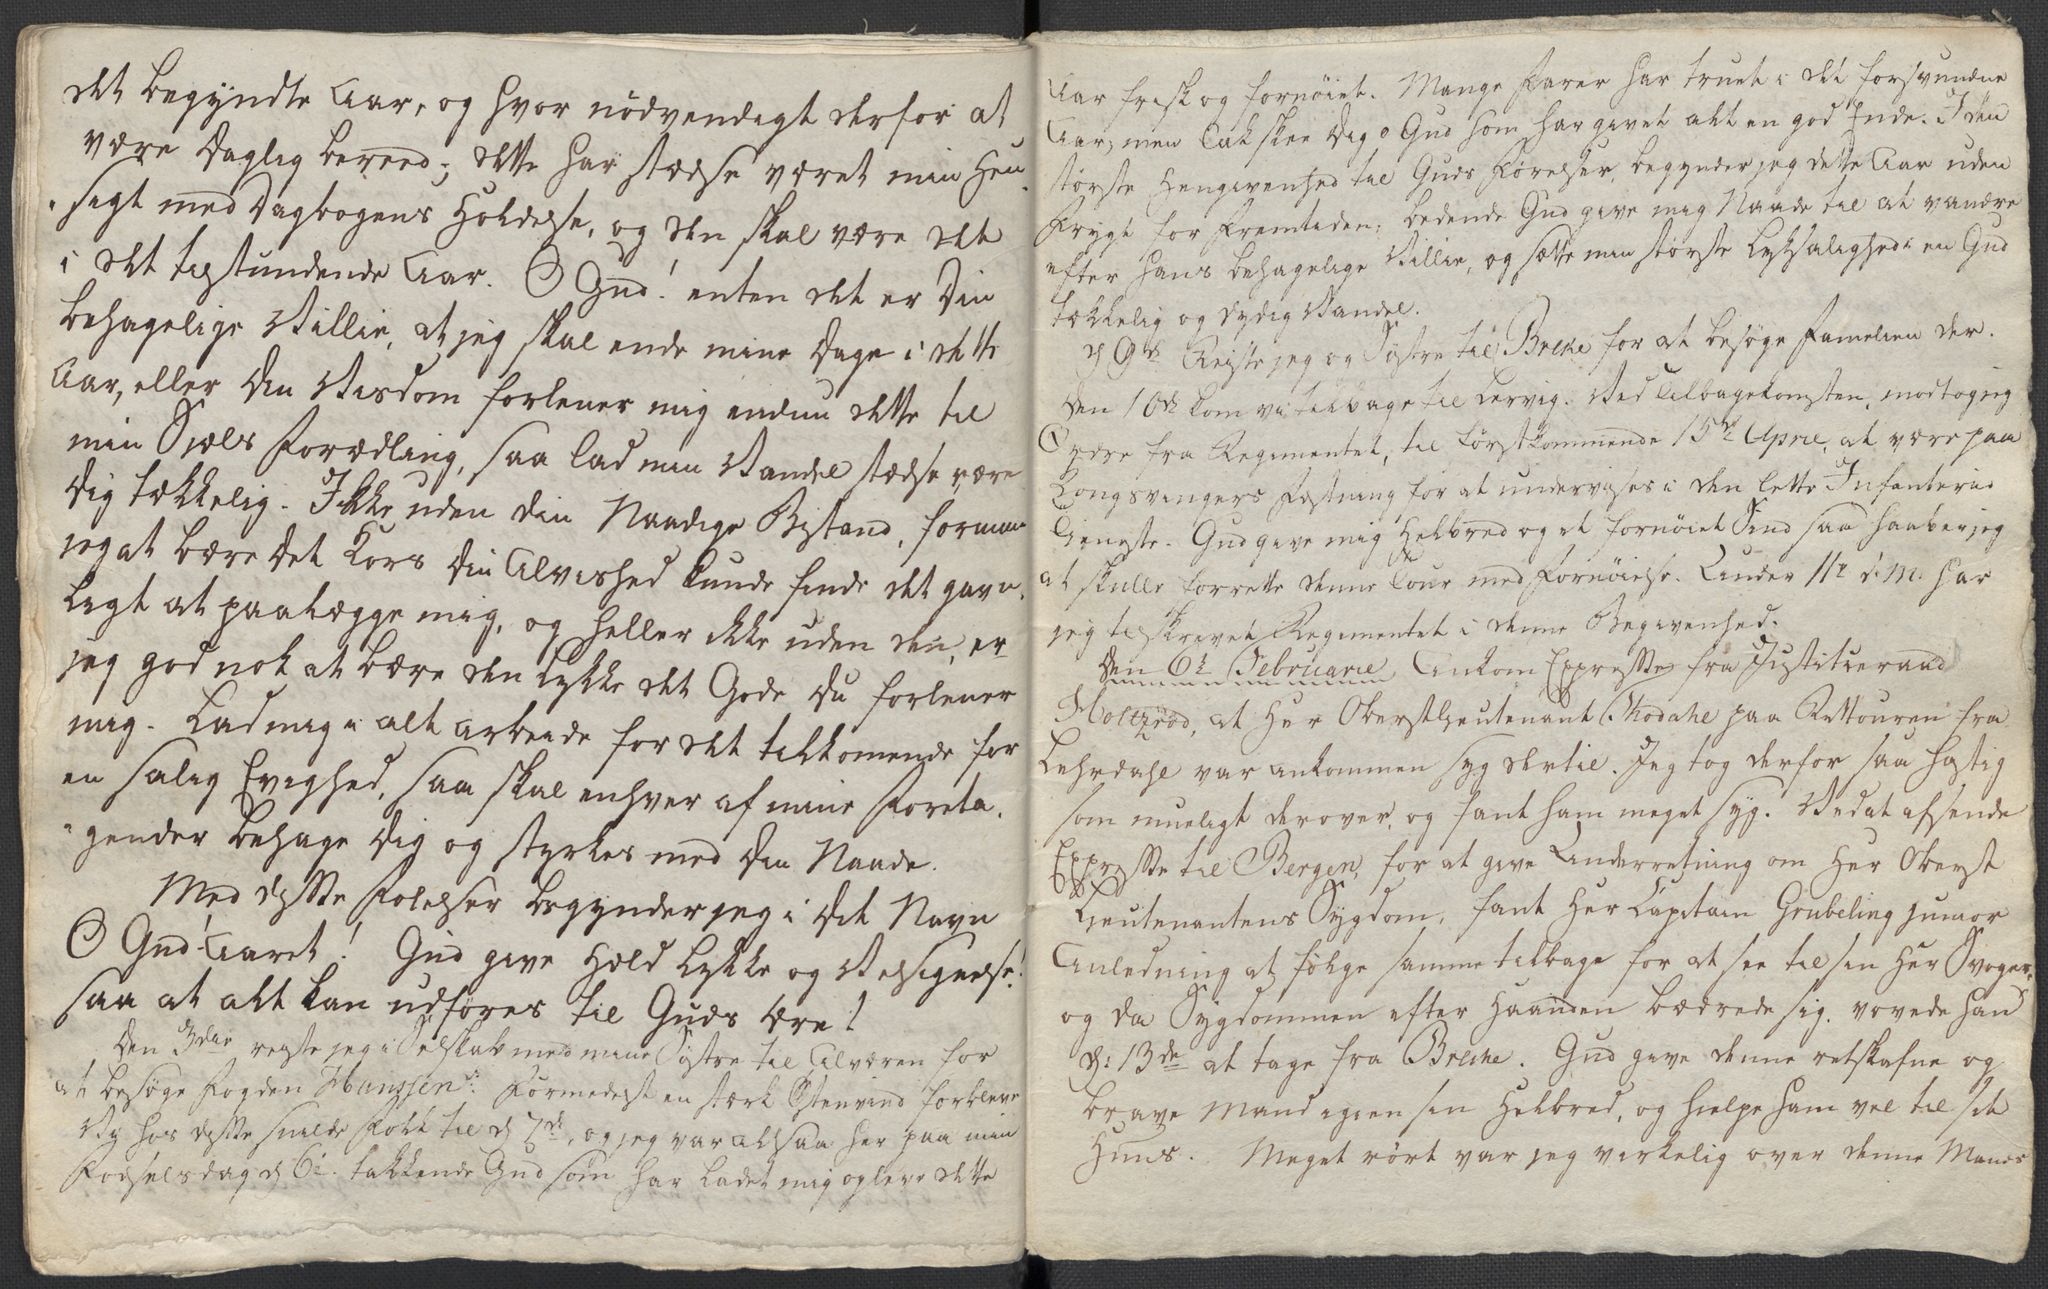 det begyndte Aar, og hvor nödvendigt derfor at
være daglig bereed; dette har stedse været min Hen
sigt med Dagbogens Holdelse, og den skal være det
i det tilstundende Aar. O Gud! enten det er Din
behagelige Villie, at jeg skal ende mine Dage i dette
Aar, eller Din Visdom forlener mig endnu dette til
min Siæls Forædling, saa lad min Vandel stedse være
Dig tækkelig. Ikke uden din Naadige Bistand, formaaer
jeg at bære det Kors Din Alvished kunde finde det gavn,
ligt at paalægge mig, og heller ikke uden den, er
jeg god nok at bære den Lykke det Gode Du forlener
mig. Lad mig i alt arbeide for det tilkomende for
en salig Evighed, saa skal enhver af mine Foreta,
gender behage Dig og styrkes med Din Naade.
Med disse Følelser begynder jeg i Dit Navn
O Gud! Aaret! Gud give Held Lykke og Velsignelse!
saa at alt kan udføres til Guds Ære!
Den 3die reiste jeg i Selskab med mine Søstre til Alværen for
at besöge Fogden Hanssen. Formedelst en stærk Østenvind forbleve
Vy hos disse snilde Folk til d 7de, og jeg var altsaa her paa min
Fødselsdag d 6te. takkende Gud som har ladet mig opleve dette
Aar frisk og fornøiet. Mange Farer har truet i det forsvundne
Aar, men Tak skee Dig o Gud som har givet alt en god Ende. I den
største Hengivenhed til Guds Førelser, begynder jeg dette Aar uden
Frygt for Fremtiden, bedende Gud give mig Naade til at vandre
efter hans behagelige Villie, og sætte min største Lyksalighed i en Gud
tækkelig og dydig Vandel.
d 9de Reiste jeg og Søstre til Breke for at besøge Familien der.
Den 10de kom vi tilbage til Lervig. Ved Tilbagekomsten, modtog jeg
Ordre fra Regimentet, til førstkommende 15de April, at være paa
Kongsvingers Fæstning for at undervises i den lette Infanterie
Tieneste. Gud give mig Helbred og et fornøiet Sind saa haaber jeg
at skulle forrette denne Tour med Fornøielse. Under 11te d: M: har
jeg tilskrevet Regimentet i denne Begivenhed.
Den 6te Februarie Ankom Expresse fra Justitzeraad
Holtzrød, at Her Oberstlieutenant Rhodahl paa Rettouren fra
Lehrdahl var ankommen syg dertil. Jeg tog derfor saa hastig
som mueligt derover, og fant ham meget syg. Ved at afsende
Expresse til Bergen, for at give Underretning om Her Oberst
Lieutenantens Sygdom, fant Her Capitain Grubeling junior
Anledning at følge samme tilbage for at see til sin Her Svoger,
og da Sygdommen efter Haanden bædrede sig, vovede han
d: 13de at tage fra Breche. Gud give denne retskafne og
brave Mand igien sin Helbred, og hielpe ham vel til sit
Huus. Meget rört var jeg virkelig over denne Mands